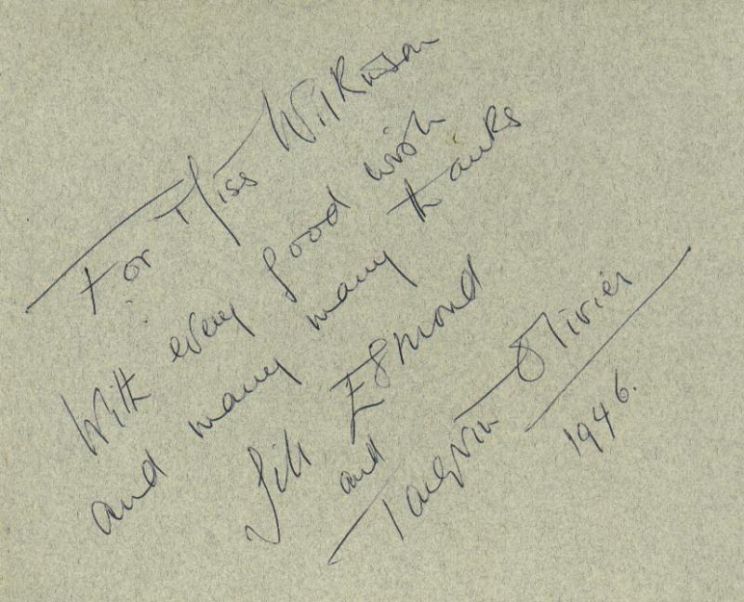 For Miss Wilkinson
With every good wish
and many many thanks
Jill Esmond
and
Tarquin Olivier
1946.